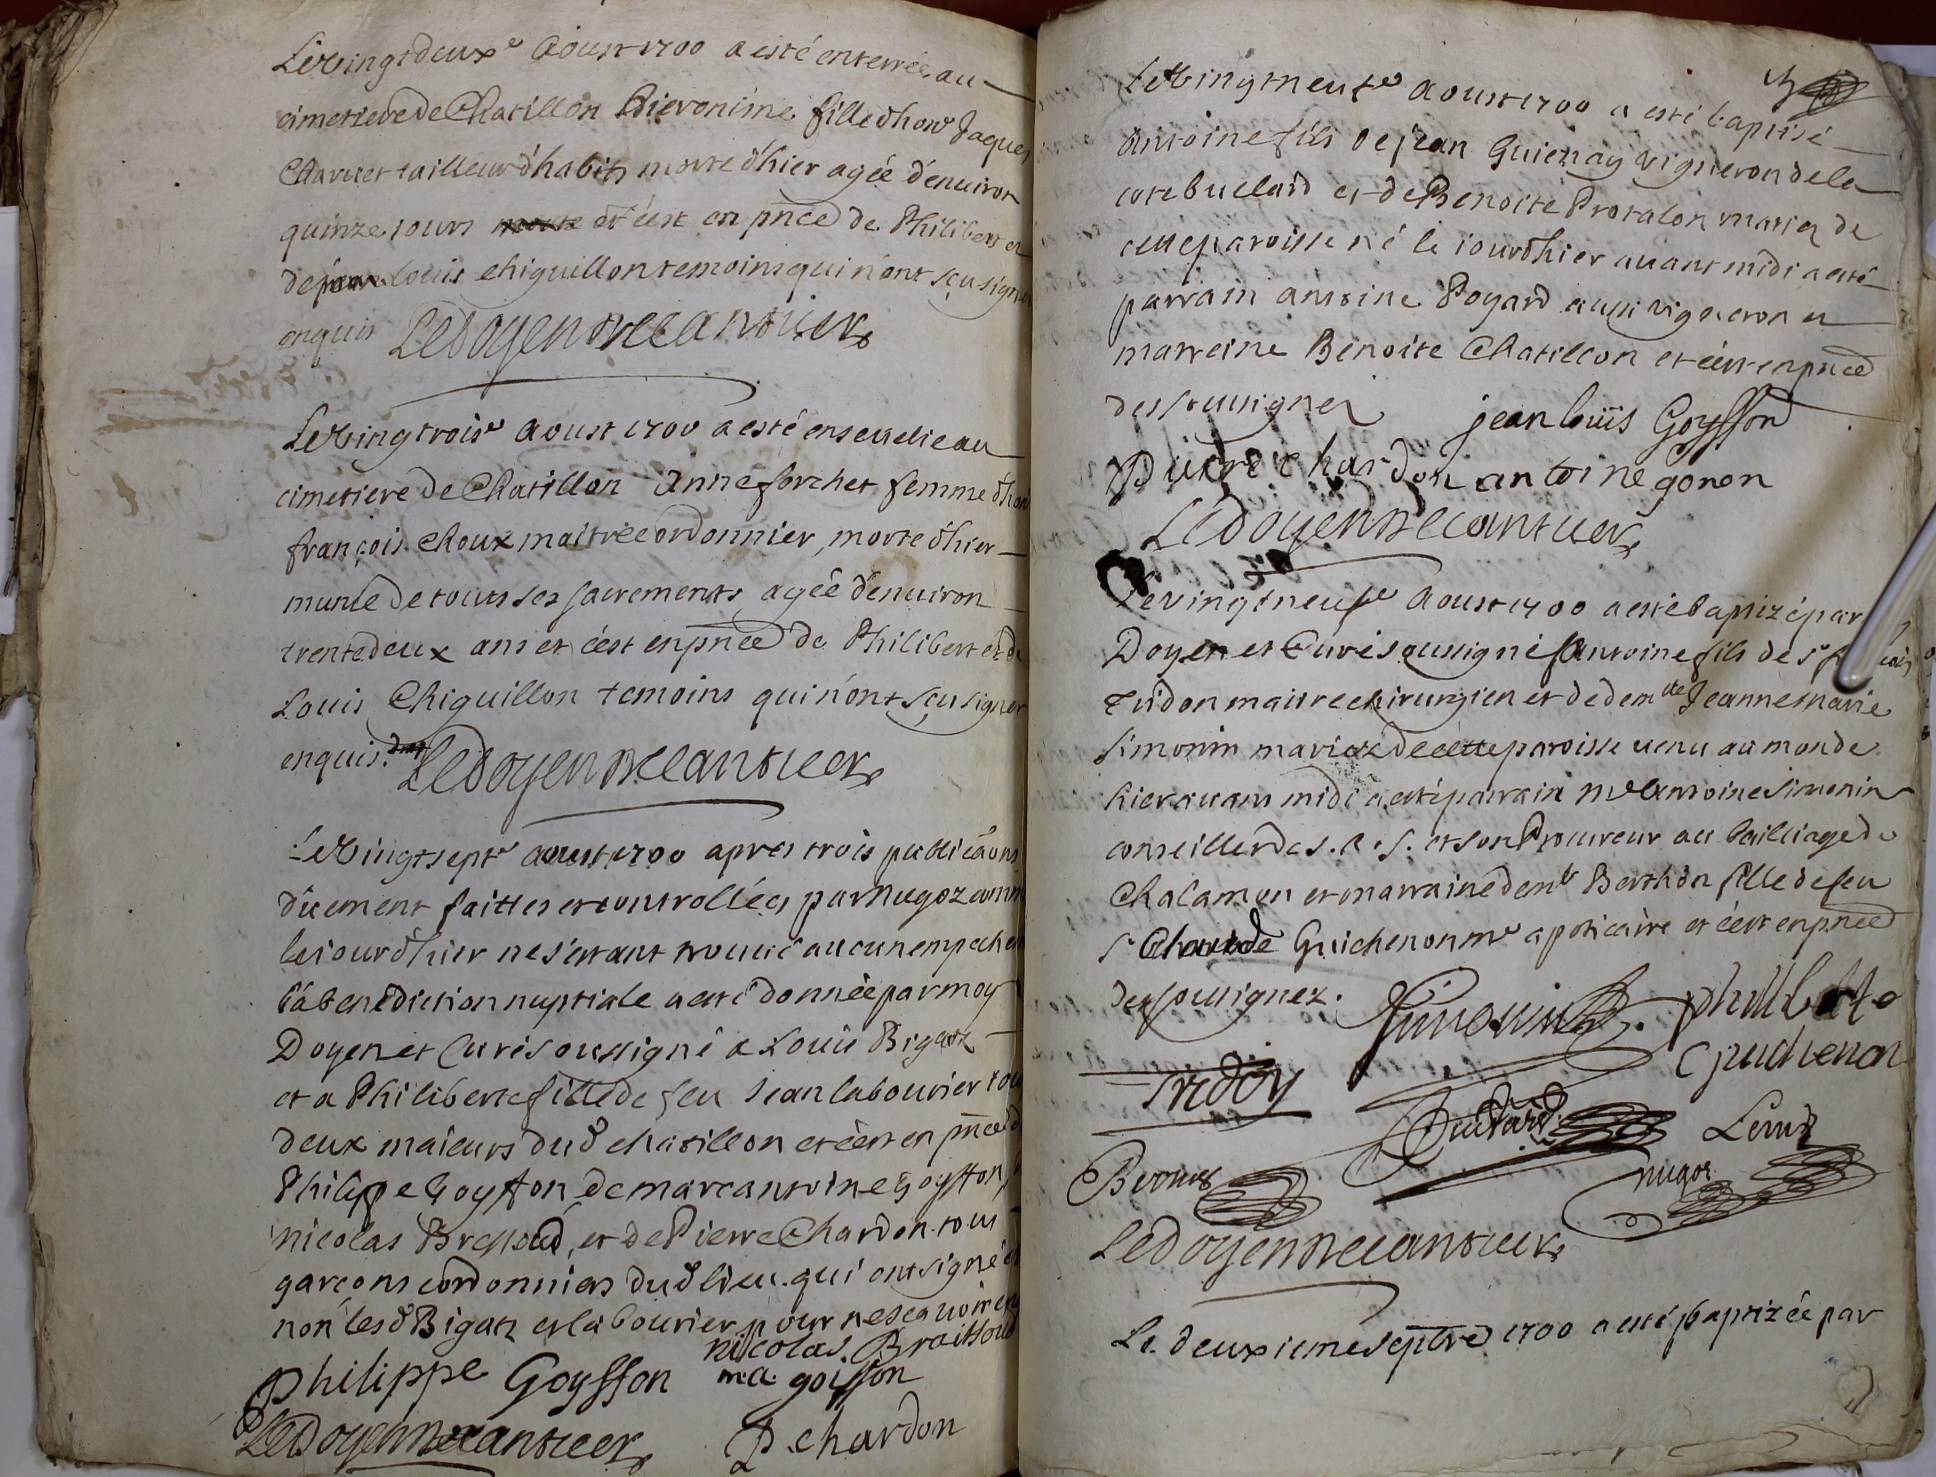 Le vingtdeuxe Aoust 1700 a esté enterrée au
cimetiere de Chatillon hieronime fille d'hon Jaques
Charvet tailleur d'habits morte d'hier agée d'environ
quinze jours et c'est en pnce de Philibert et
de Louis chiguillon temoins qui n'ont sçu signer
enquis Ledoyen
Le vingtroise Aoust 1700 a esté ensevelie au
cimetiere de Chatillon Anne forchet femme d'hon
françois choux maitre cordonnier, morte d'hier
munie de touts ses sacrements, agée d'environ
trentedeux ans et c'est en pnce de Philibert et de
Louis Chiguillon temoins qui n'ont sçu signer
enquis. Ledoyen
Le vingtsepte Aoust 1700 apres trois publicãons
düement faittes et controllées par Nugoz
le jourd'hier ne s'estant trouvé aucun empeche
la benediction nuptiale a esté donnée par moy
Doyen et Curé soussigné a Louis Bigatz
et a Philiberte fille de feu Jean labourier tous
deux majeurs dud chatillon et c'est en pnce de
Philippe Goyffon, de marc antoine Goyffon,
nicolas Bressoud, et de Pierre Chardon tous
garçons cordonniers dud lieu qui ont signé et
non lesd Bigatz et labourier pour ne sçavoir en
nicolas Braissoud
philippe Goyffon m.a. goiffon
Ledoyen P. chardon
Le vingtneufe Aoust 1700 a esté baptisé
Antoine fils de jean Guienay vigneron de la
cote bullard et de Benoite Protalon mariez de
cette paroisse né le jourd'hier avant midi a esté
parrain antoine Poyard aussi vigneron et
marreine Benoite Chatillon et c'est en pnce
des soussignez jean louis Goyffon
Pierre chardon antoine gonon
Ledoyen
Le vingtneufe Aoust 1700 a esté baptizé par
Doyen et Curé soussigné Antoine fils de sr
Tridon maitre chirurgien et de demlle Jeanne marie
Simonin mariez de cette paroisse venu au monde
hier avant midi a esté parrain me Antoine Simonin
conseiller de s.a.s. et son Procureur au bailliage de
Chalamon et marraine demlle Berthon fille de feu
sr Claude Guichenon me apoticaire et c'est en pnce
des soussignez. Simonin philiberte
Tridon Cguichenon
Buirard Lemd
Bernod nugoz
Ledoyen
Le deuxieme septbre 1700 a esté baptizée par